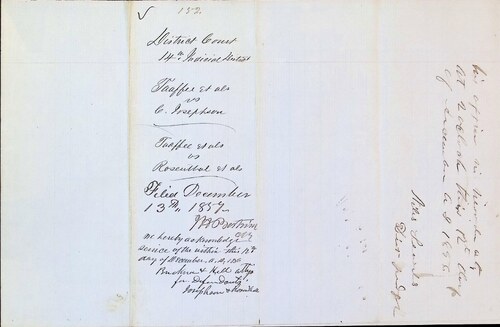 152.
District Court
14th Judicial District
Taaffee et als
vs
C. Josephson
Taaffee et als
vs
Rosenthal et als
Filed December
13th, 1857
We hereby acknowledge
service of the within this 12th
day of December A.D. 185
Buckner & Hill attys
for Defendants
Josephson &
his office in
at 2 o'clock this 12th day
of December A D 185
Dist Judge